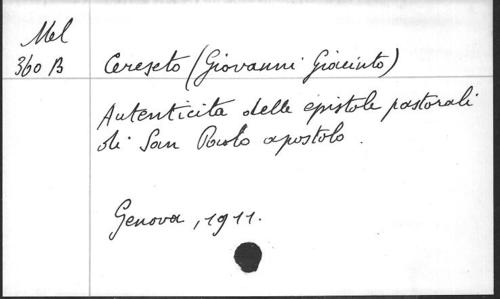 Mel
360 B
Cereseto (Giovanni Giacinto)
Autenticita delle epistole pastorali
di San Paolo apostolo.
Genova, 1911.